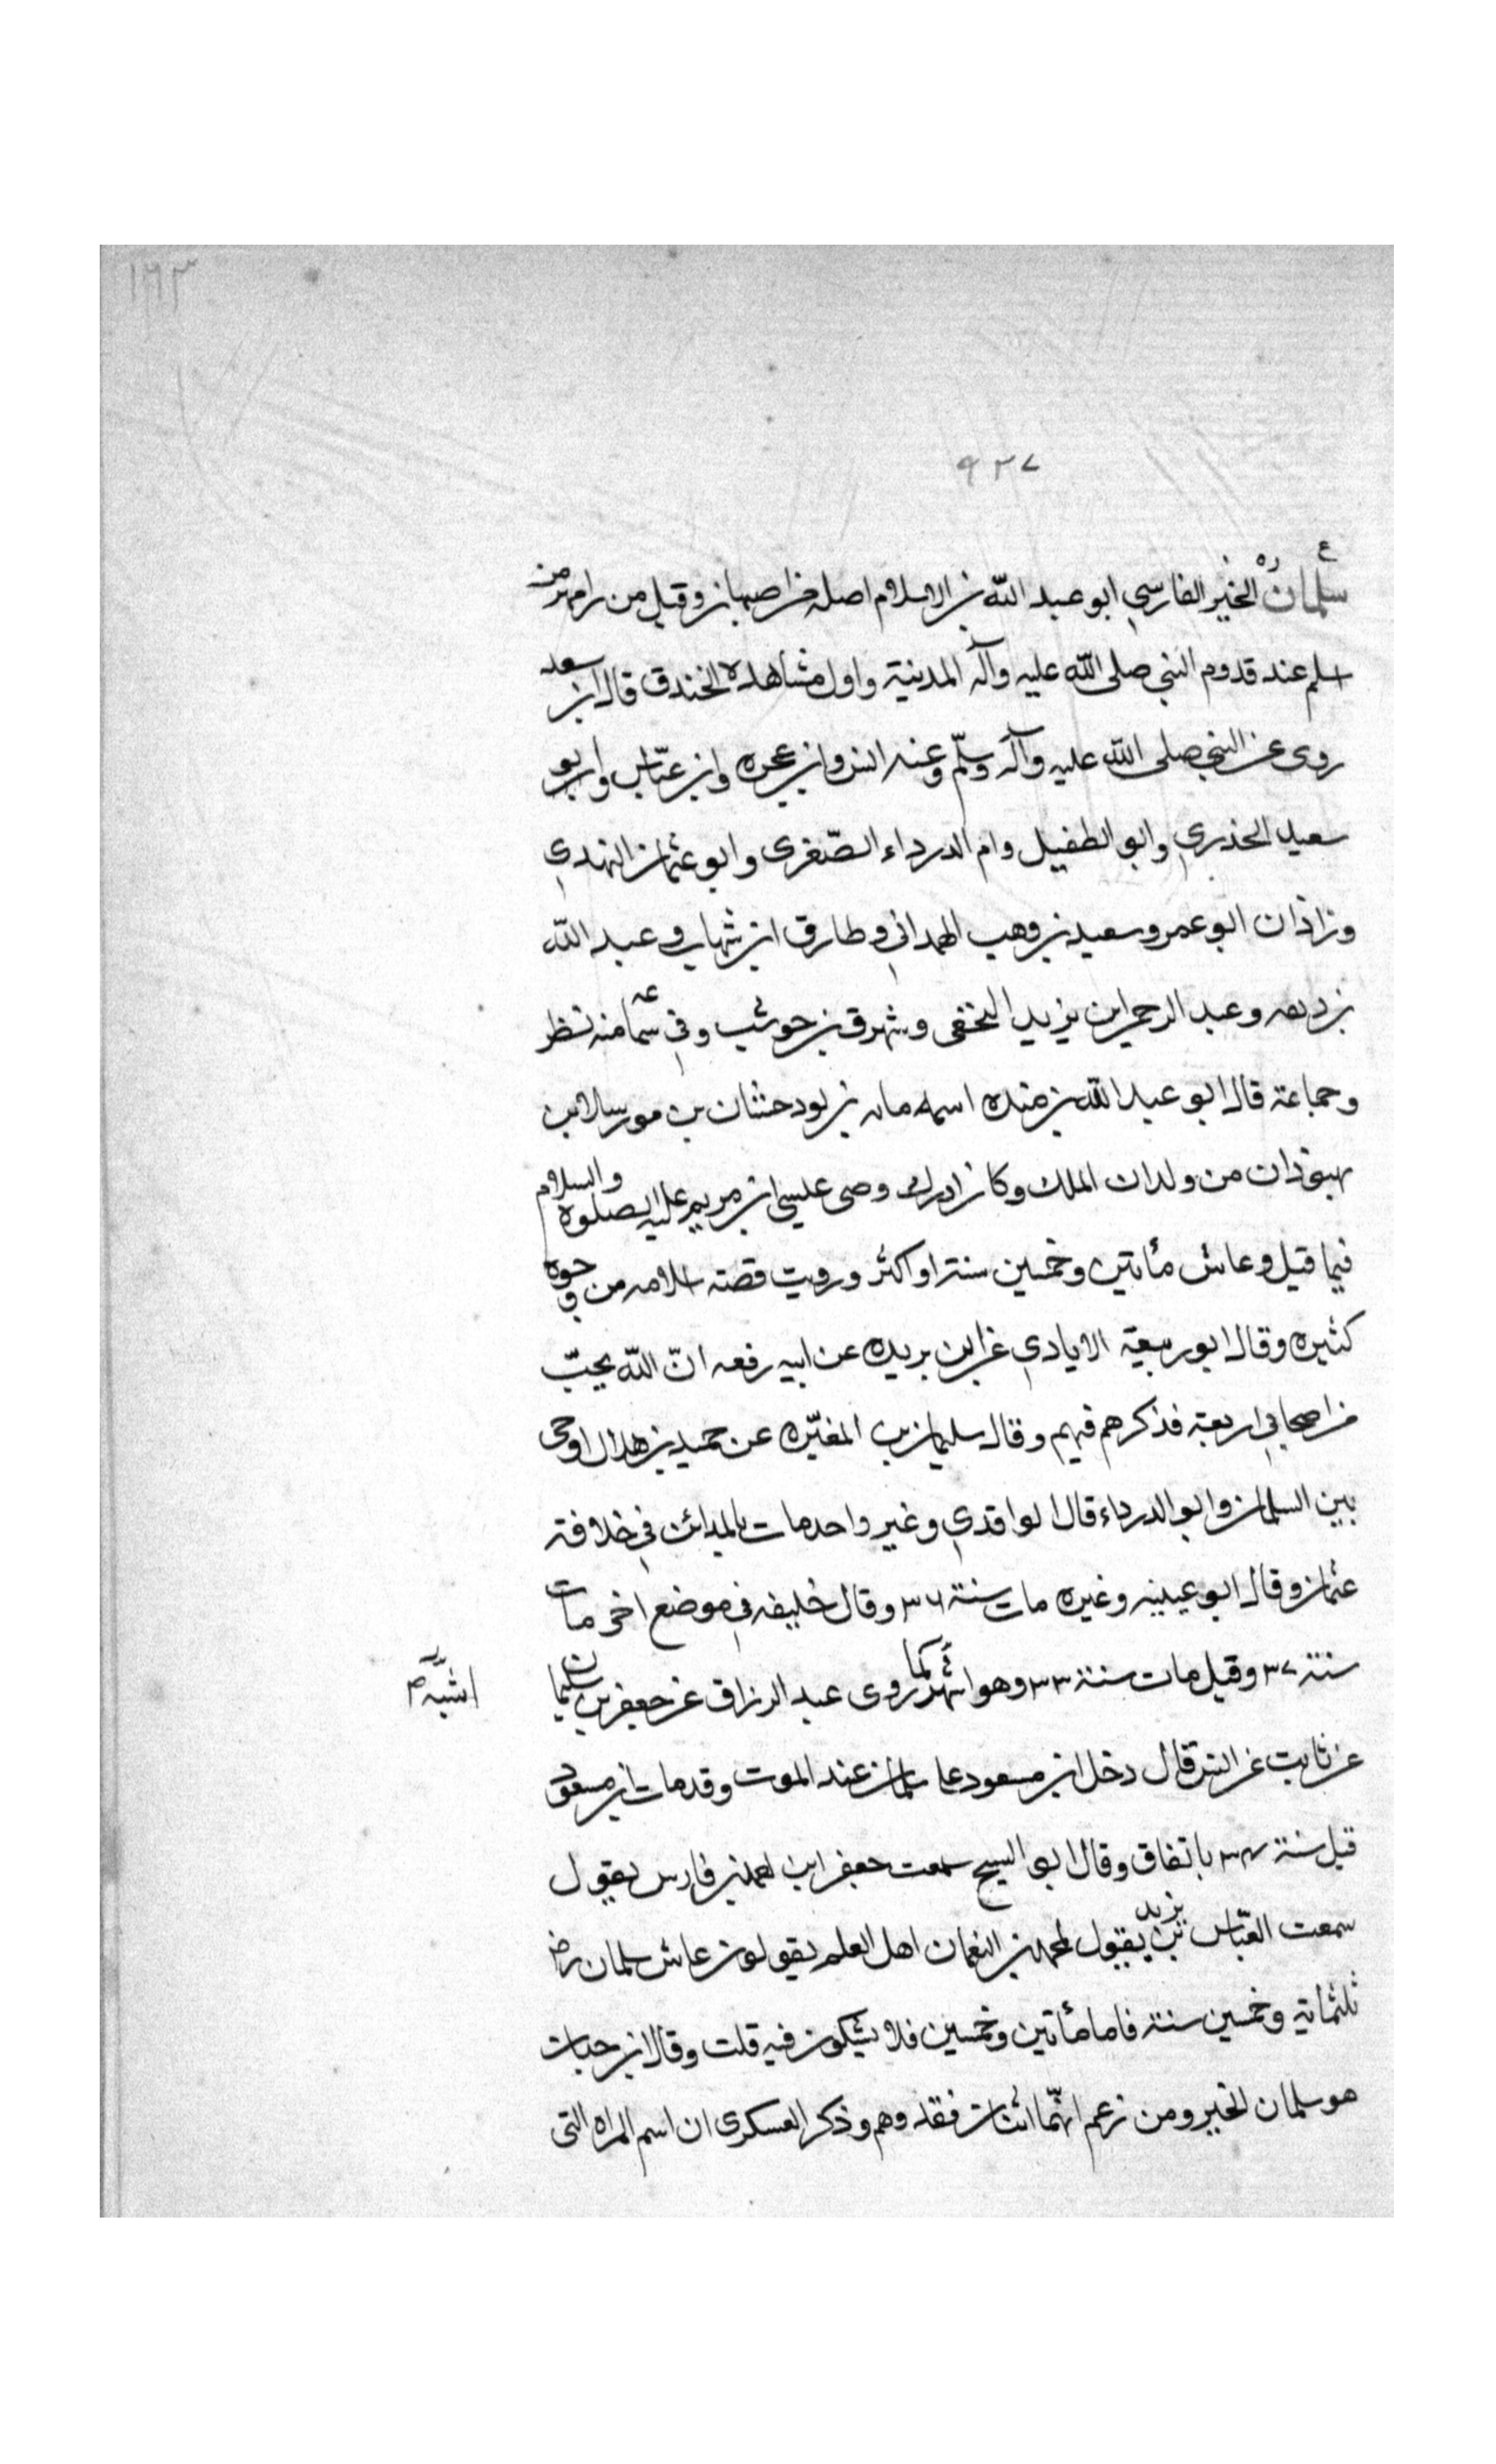 ١٩٣
٩٢٧
ع
سلمان ره الخير الفارسي ابو عبد الله بن الاسلام اصله من اصبهان وقيل من رامهرمن
اسلم عند قدوم النبي صلى الله عليه وآله المدينة واول مشاهده الخندق قال ابن سعد
روى عن النبي صلى الله عليه وآله وسلّم وعنه انس وابن عجره وابن عبّاس وابو
سعيد الخذري وابو الطفيل وام الدرداء الصّغرى وابو عثمان النهدي
وزاذان ابو عمر وسعيد بن وهب الهمداني وطارق ابن شهاب وعبد الله
بن وديعه وعبد الرحمن ابن يزيد النخعي وشهرق بن حوشب وفي سماعه منه نظر
وجماعة قال ابو عبد الله بن منده اسمه مابه بن بودحشان بن مورسالا بن
بهبوذان من ولدان الملك وكان ادرك وصى عليسى ابن مريم عليه الصلوة والسلام
فيما قيل وعاش مأتين وخمسين سنة او اكثر ورويت قصته اسلامه من وجوه
كثيره وقال ابو ربيعة الايادي عن ابن بريده عن ابيه رفعه انّ الله يحبّ
من اصحابي اربعة فذكرهم فيهم وقال سليمان بن المغيّره عن حميد بن هلال اوحى
بين السلمان وابو الدرداء قال الواقدي وغير واحد مات بالمدائن في خلافة
عثمان وقال ابو عبيد وغيره مات سنة ٣٦ وقال خليفه في موضع اخر مات
سنة ٣٧ وقيل مات سنة ٣٣ وهو اشهر كما روى عبد الرزاق عن جعفر بن سليمان
اشبه م
عن ثابت عن انس قال دخل ابن مسعود على سلمان عند الموت وقد مات ابن مسعود
قبل سنة ٣٤ باتفاق وقال ابو الشيح سمعت جعفر ابن احمد بن فارس يقول
سمعت العبّاس بن يزيد يقول لمحمد بن النعمان اهل العلم يقولون عاش سلمان رض
ثلثمائة وخمسين سنة فاما مأتين وخمسين فلا يشكون فيه قلت وقال ابن حبان
هو سلمان الخير ومن زعم انهّما اثنان فقد وهم وذكر العسكرى ان اسم المراه التى